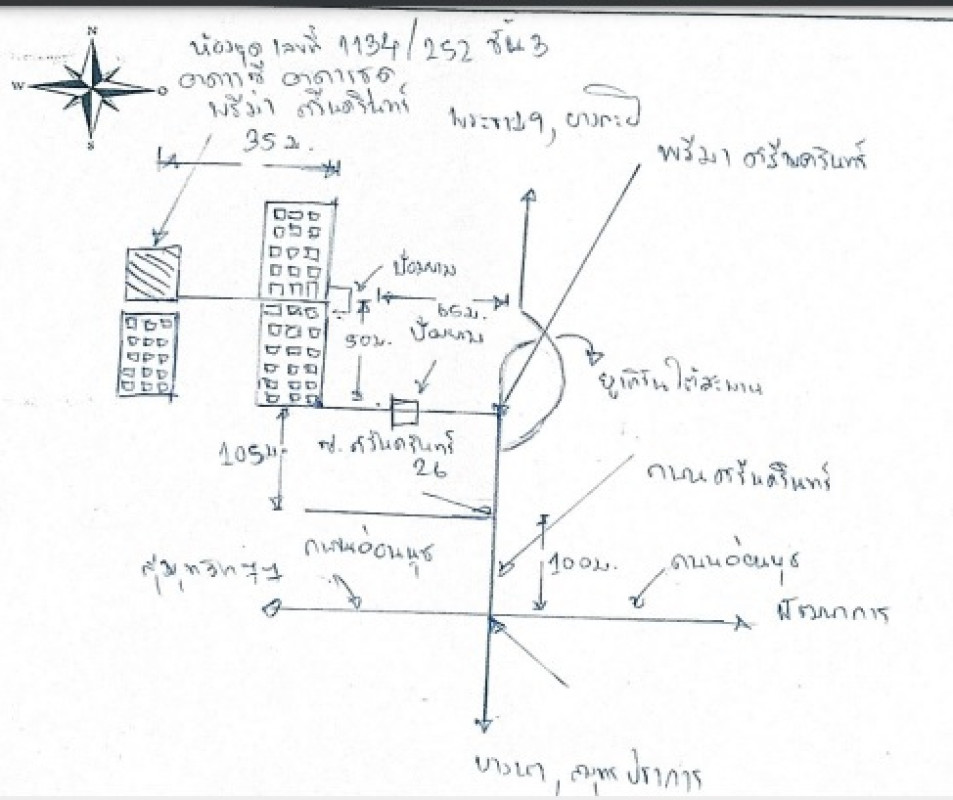 N
W
S
ห้องชุด เลขที่ 1134/252 ชั้น 3
อาคารซี อาคารชุด
พรีมา ศรีนครินทร์
35 ม.
พระราม 9, บางกะปิ
พรีมา ศรีนครินทร์
ป้อมยาม
65ม.
ป้อมยาม
ยูเทิร์นใต้สะพาน
105ม.
ซ. ศรีนครินทร์
26
ถนนศรีนครินทร์
ถนนอ่อนนุช
100ม.
ถนนอ่อนนุช
สุขุมวิท 77
พัฒนาการ
บางนา, สมุทรปราการ